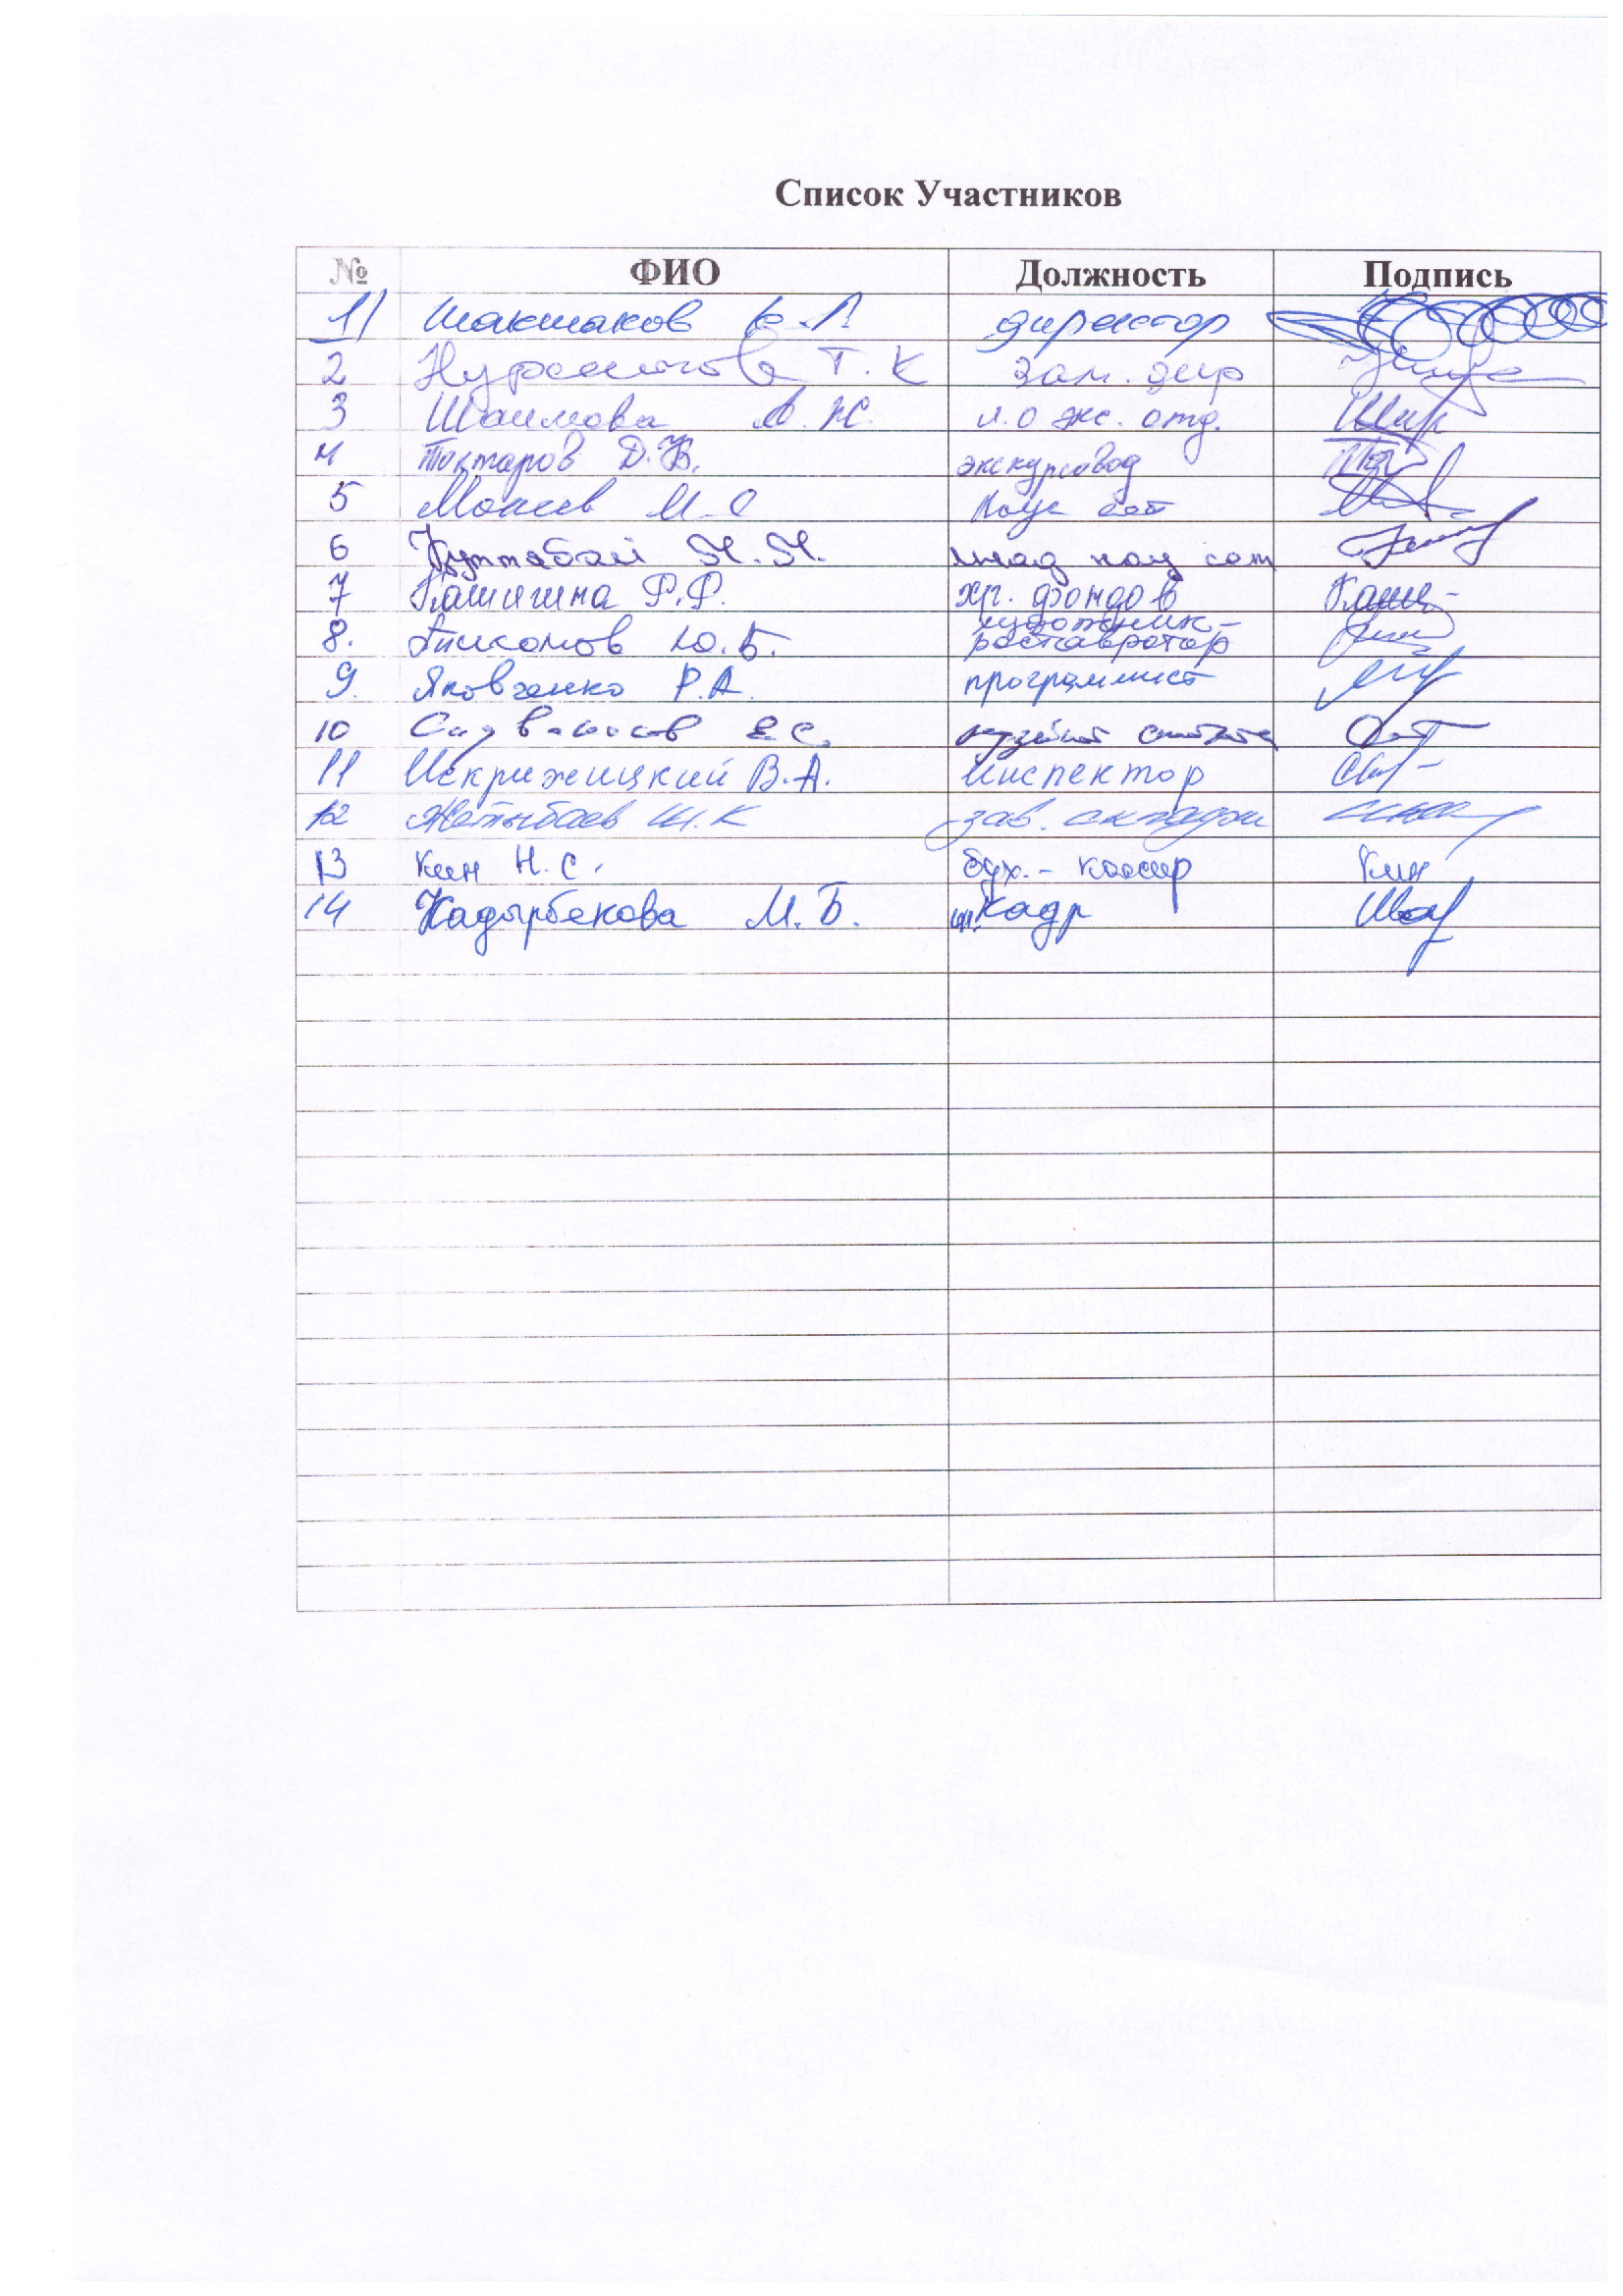 Список Участников
№ ФИО Должность Подпись
1) Шакшаков Е.Л директор
2 Т.К зам. дир
3 Шаимова А.Ж. и.о экс. отд.
4 Токтаров Д.К. экскурсовод
5 М.О Науч сот
6 Құттыбай М.М. млад науч сот
7 Кашигина Р.Р. хр. фондов
художник-
8. Ю.Б. реставратор
9. Яковченко Р.А. программист
10 Е.С.
11 Искрижицкий В.А. Инспектор
12 Жетыбаев Ш.К зав. складом
13 Ким Н.С. бух.-кассир Ким
14 Кадырбекова М.Б. Кадр